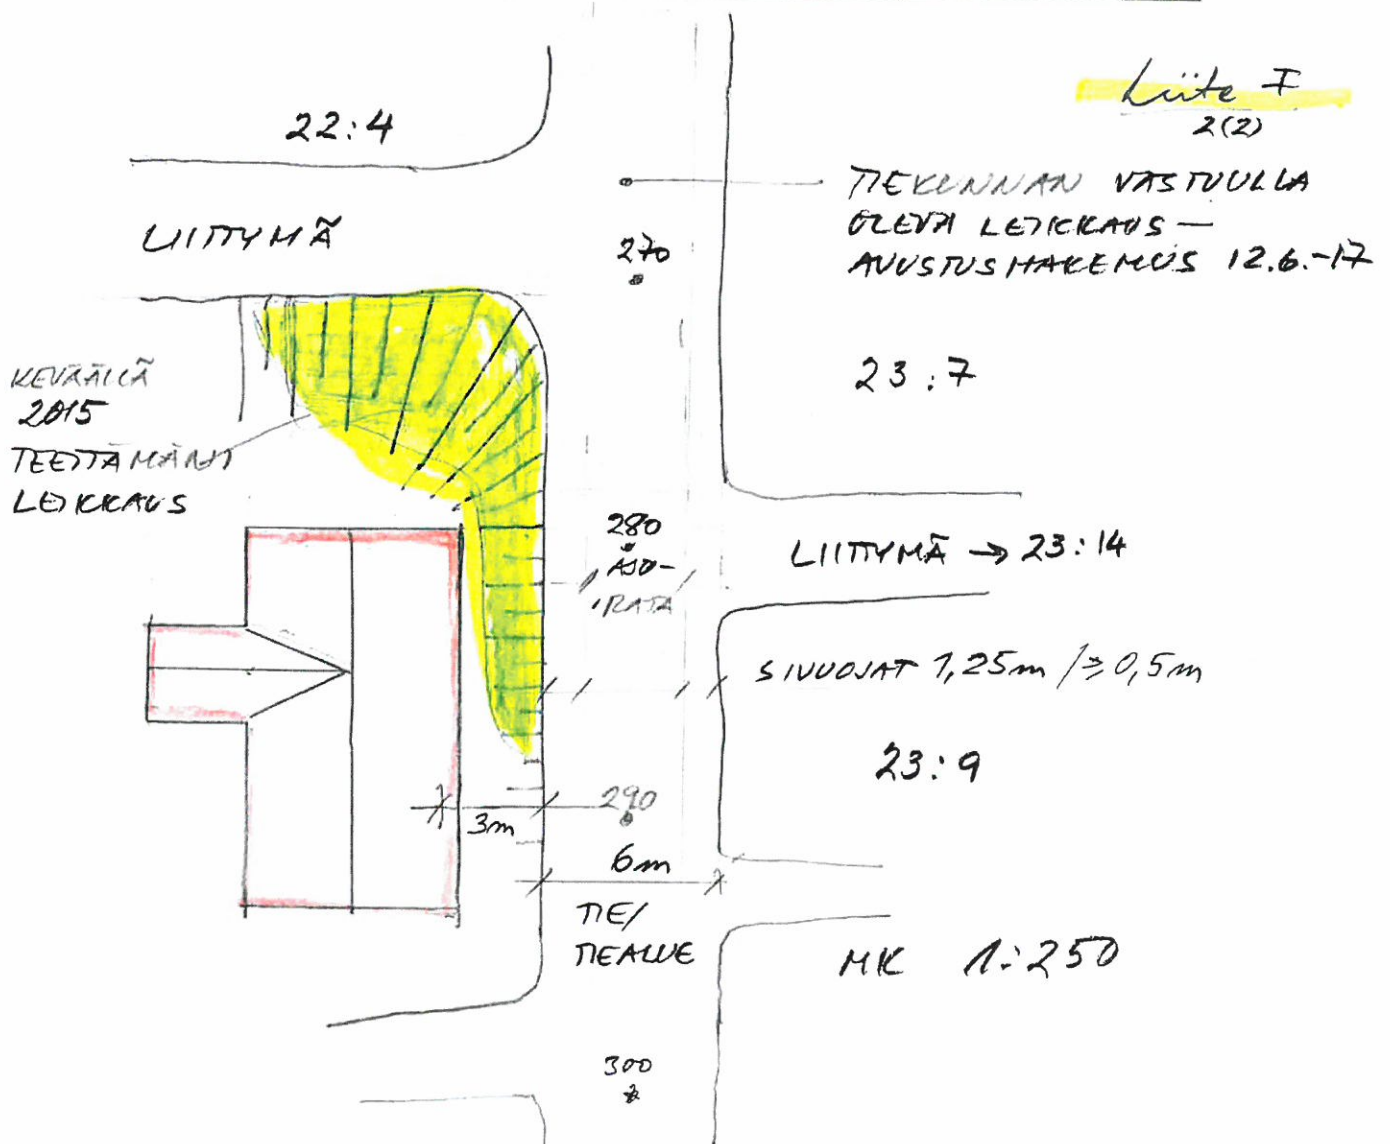 Liite I
2(2)
22:4
TIEKUNNAN VASTUULLA
OLEVA LEIKKAUS —
AVUSTUSHAKEMUS 12.6.-17
LIITTYMÄ
270
23:7
KEVÄÄLLÄ
2015
TEETTÄMÄNI
LEIKKAUS
280
AJO-
RATA
LIITTYMÄ → 23:14
SIVUOJAT 1,25m / ≥ 0,5m
23:9
290
3m
6m
TIE/
TIEALUE
MK 1:250
300